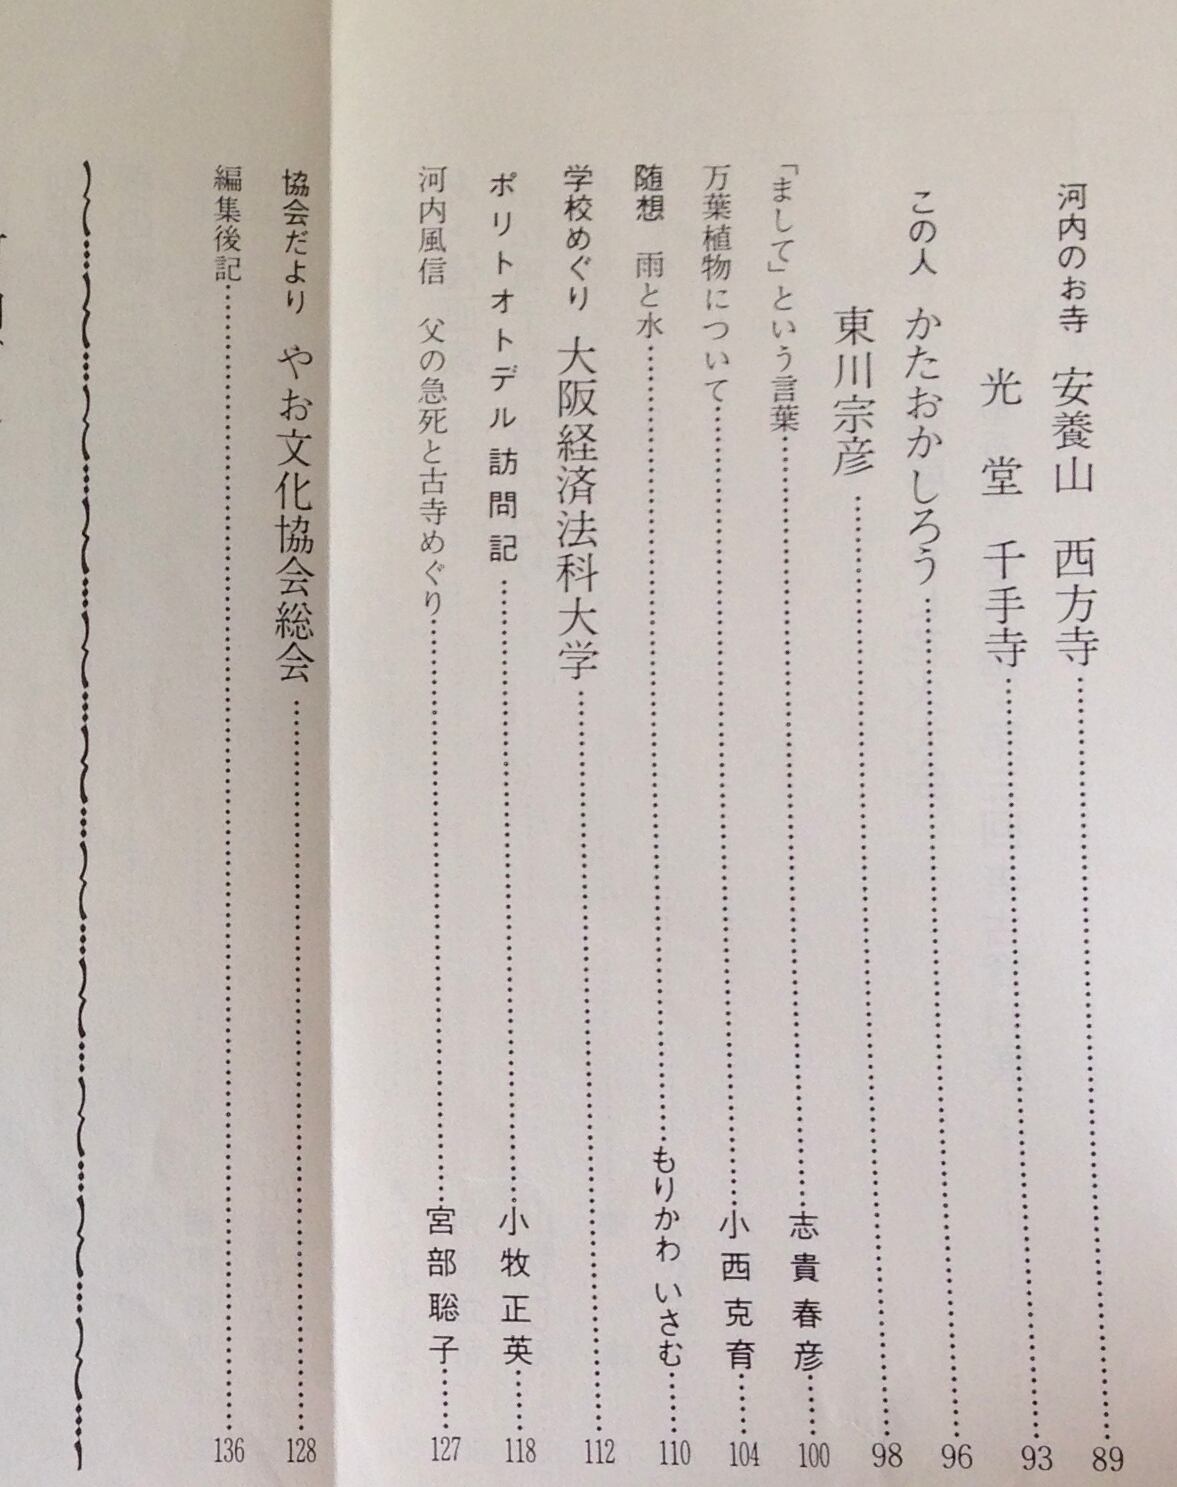 河内のお寺　安養山　西方寺……89
光　堂　千手寺……93
この人　かたおかしろう……96
東川宗彦……98
「まして」という言葉……志貴春彦……100
万葉植物について……小西克育……104
随想　雨と水……もりかわ　いさむ……110
学校めぐり　大阪経済法科大学……112
ポリトオトデル訪問記……小牧正英……118
河内風信　父の急死と古寺めぐり……宮部聡子……127
協会だより　やお文化協会総会……128
編集後記……136